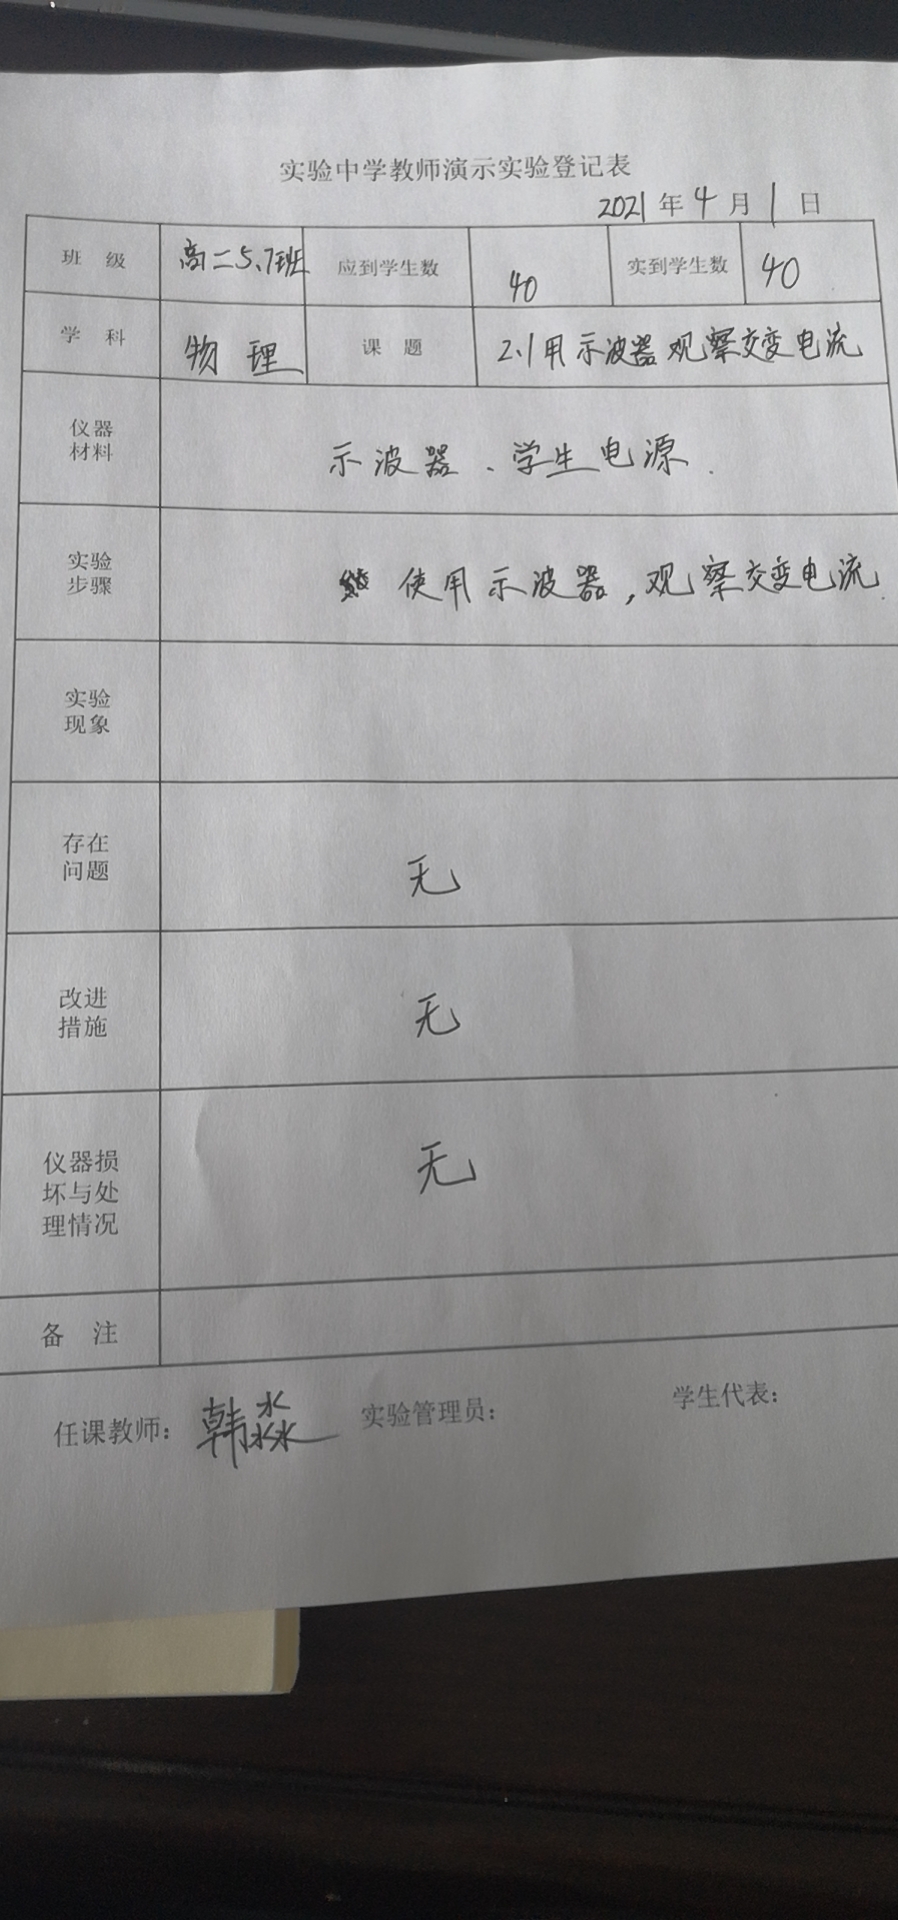 实验中学教师演示实验登记表
2021年4月1日
班 级 高二5、7班 应到学生数 40 实到学生数 40
学 科 物理 课 题 2.1用示波器观察交变电流
仪器
材料
示波器、学生电源.
实验
步骤
使用示波器,观察交变电流.
实验
现象
存在
问题
无
改进
措施
无
仪器损
坏与处
理情况
无
备 注
任课教师: 韩淼 实验管理员: 学生代表: